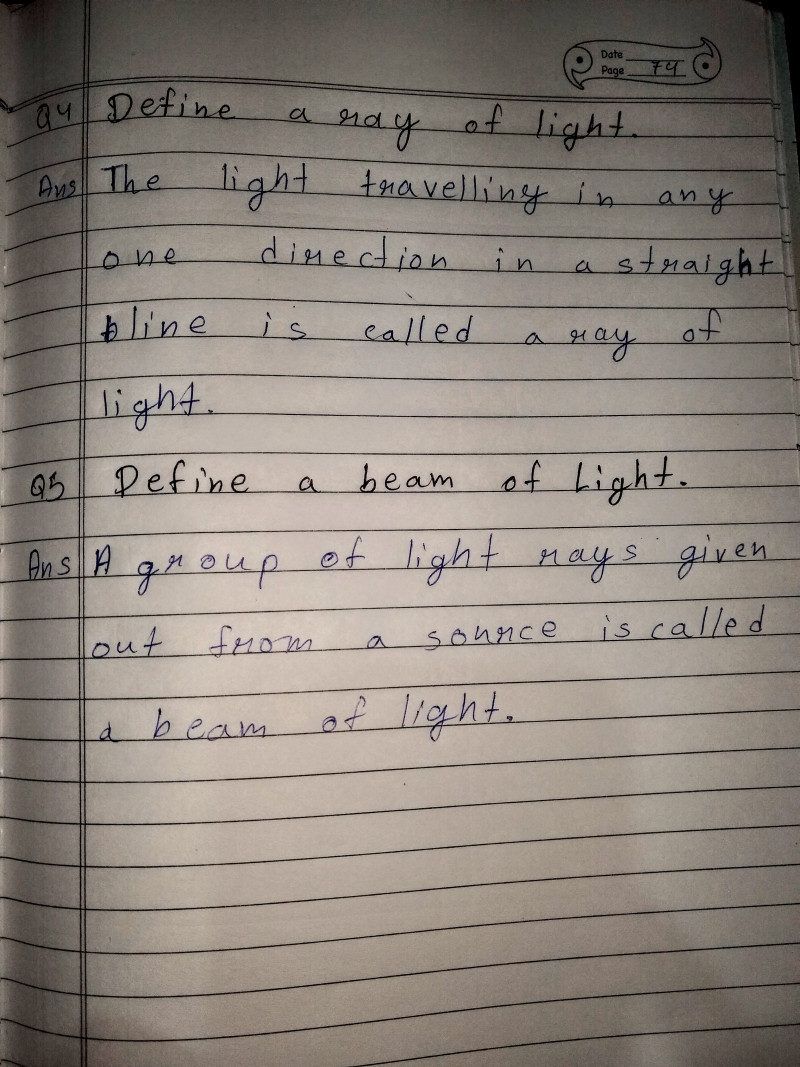 Date
Page 74
Q4 Define a ray of light.
Ans The light travelling in any
one direction in a straight
line is called a ray of
light.
Q5 Define a beam of Light.
Ans A group of light rays given
out from a source is called
a beam of light.